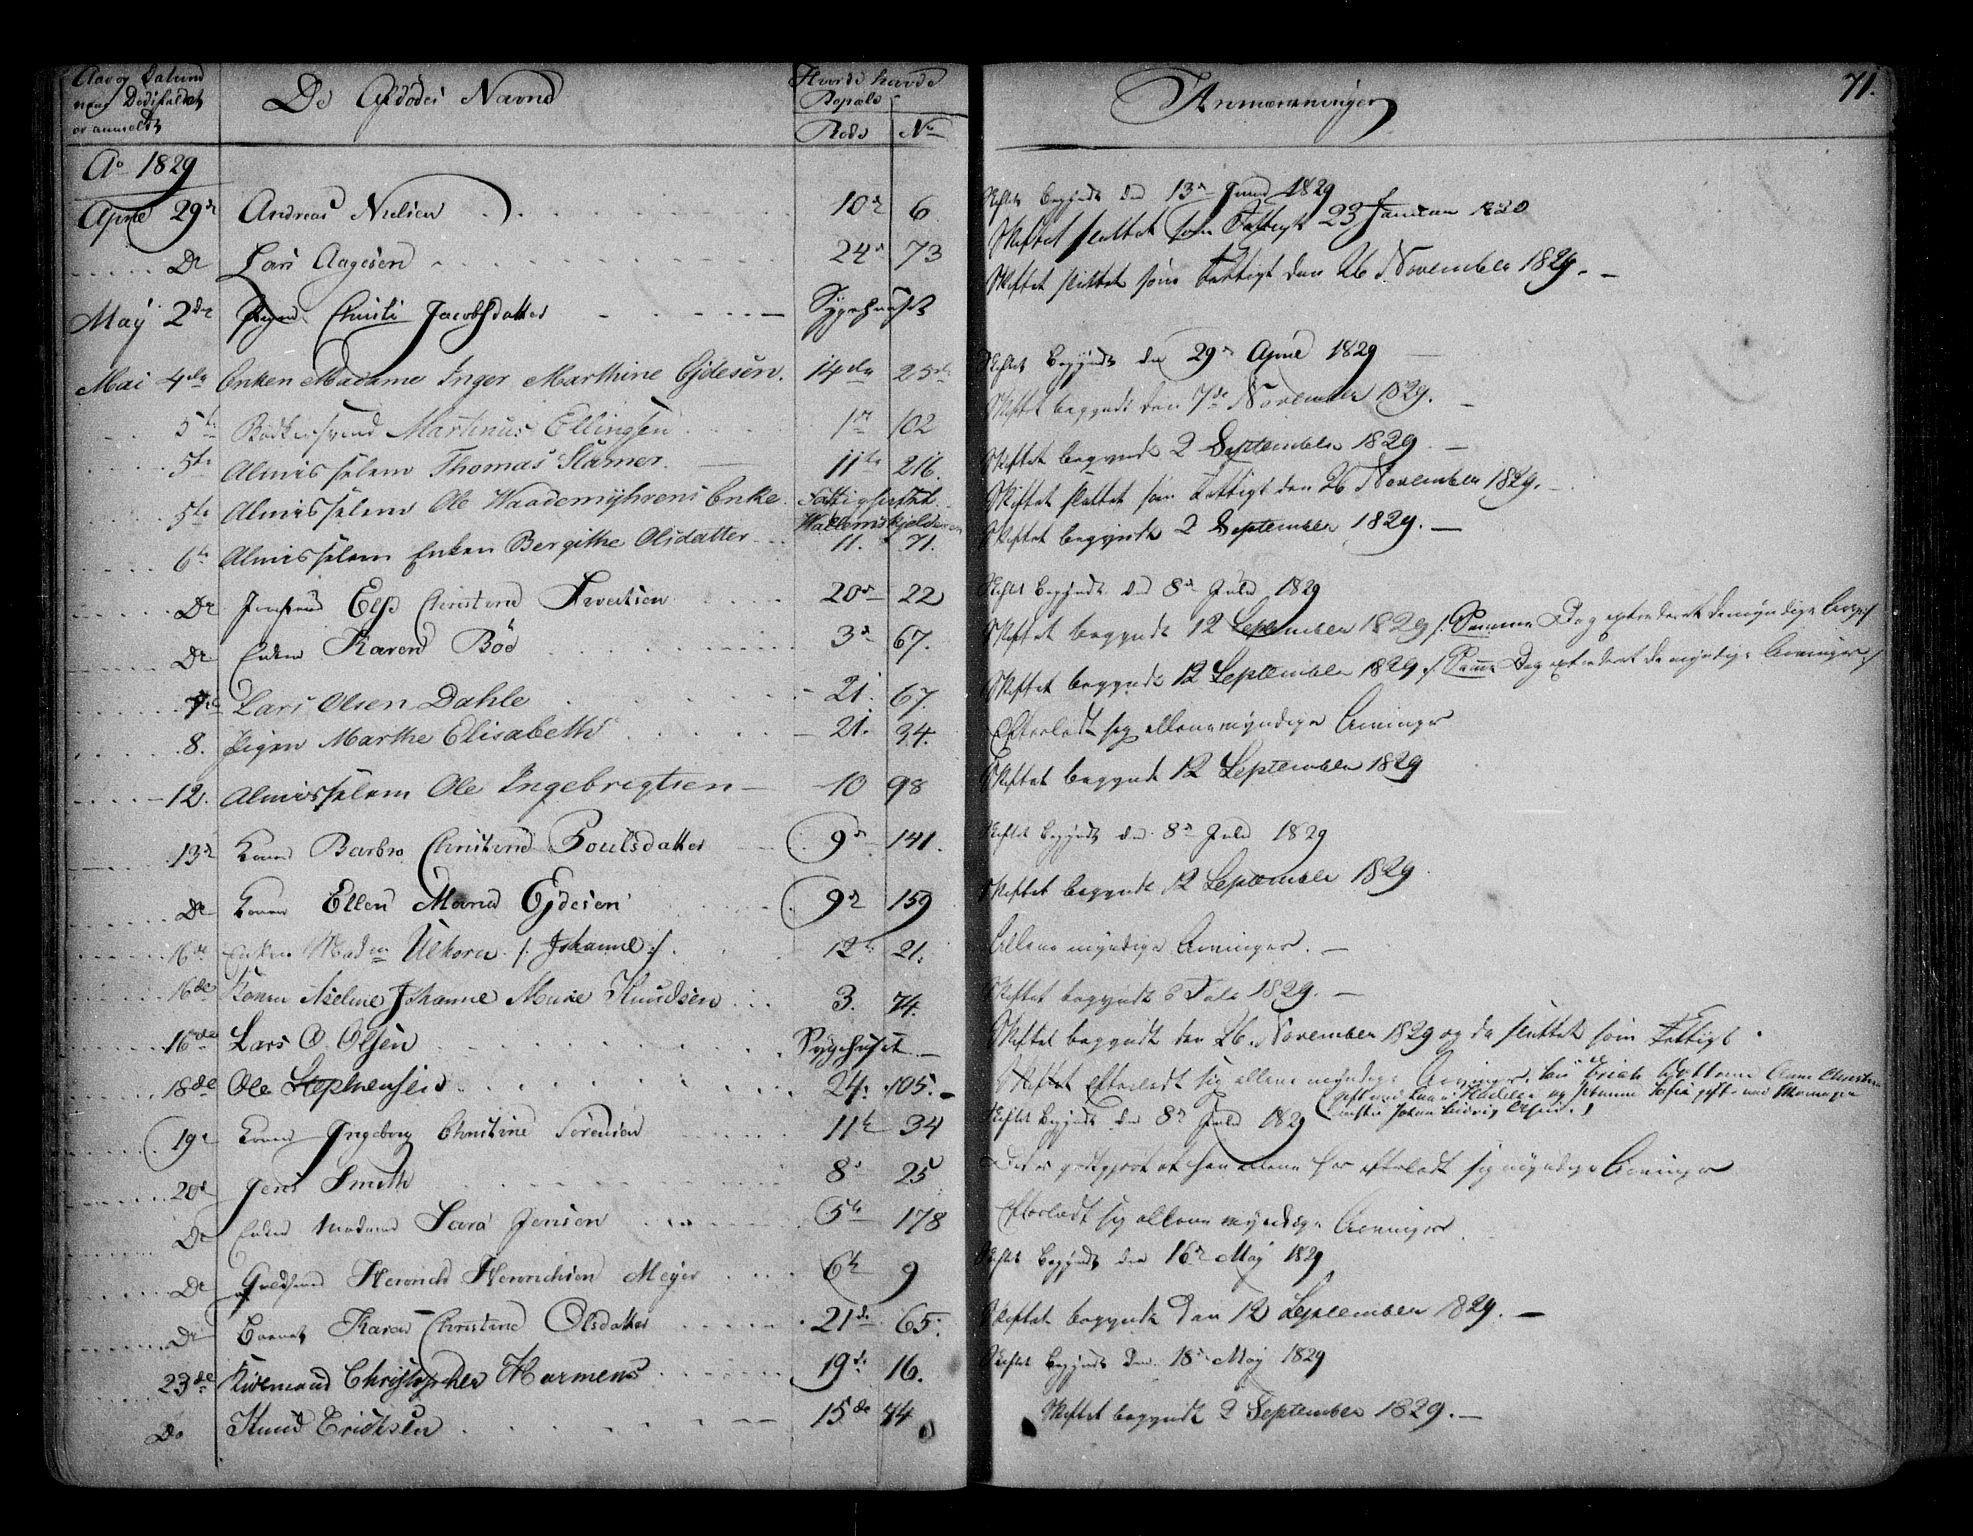 Aar og Datum
naar Dødsfaldet
er anmeldt
De Afdødes Navne
Hvor de havde
Bopæl
Rode No
Anmærkninger
71.
Ao 1829
April 29de Andreas Nielsen 10de 6 Skiftet begyndt den 13de Juni 1829
Skiftet sluttet som fattigt 23 Januar 1830
Do Lars Aagesen 24de 73 Skiftet sluttet som fattigt den 26 November 1829.
May 2den Pigen Christi Jacobsdatter Sygehuset
Mai 4de Enken Madame Inger Marthine Gjdesen. 14de 25de Skiftet begyndt den 29de April 1829
5te Bødkersvend Martinus Ellingsen 1ste 102 Skiftet begyndt den 7de November 1829.
5te Almisselem Thomas Stamer. 11te 216. Skiftet begyndt 2 September 1829
5te Almisselem Ole Waademyhrens Enke. Fattighuset Skiftet sluttet som fattigt den 26 November 1829.
6te Almisselem Enken Bergithe Olsdatter 11. 71. Skiftet begyndt 2 September 1829.
Do Jomfrue Else Christine Sivertsen 20de 22 Skiftet begyndt den 8de Juli 1829
Do Enken Karen Bøe 3de 67. Skiftet begyndt 12 September 1829 /: Samme Dag extraderet de myndige Arvinger :/
7de Lars Olsen Dahle 21. 67. Skiftet begyndt 12 September 1829 /: Samme Dag extraderet de myndige Arvinger :/
8. Pigen Marthe Elisabeth 21. 34. Efterladt sig allene myndige Arvinger
12. Almisselem Ole Ingebrigtsen 10 98 Skiftet begyndt 12 September 1829
13de Konen Barbro Christine Poulsdatter 9de 141. Skiftet begyndt den 8de Juli 1829
Do Konen Ellen Maria Gjdesen 9de 159 Skiftet begyndt 12 September 1829
16de Enken Madme Ulhorn /: Johanne :/ 12te 21. Allene myndige Arvinger.
16de Konen Aseline Johanne Marie Knudsen 3. 74. Skiftet begyndt 8 Juli 1829.
16de Lars O. Olsen Sygehuset Skiftet begyndt den 26. November 1829 og da sluttet som fattigt.
18de Ole Stephensen 24. 105. Skiftet Efterladt sig allene myndige Arvinger,
19de Konen Ingeborg Christine Sørensen 11te 34 Skiftet begyndt den 8de Juli 1829
20de Jens Smith 8de 25 Det er godtgjort at han allene har efterladt sig myndige Arvinger
Do Enken Madame Sara Jensen 5te 178 Efterladt sig allene myndige Arvinger
Do Henrich Henrichsen Meyer 6te 9 Skiftet begyndt den 16de May 1829
Do Barnet Karen Christine Olsdatter 21de 65. Skiftet begyndt den 12 September 1829.
23de Christopher Harmens 19de 16. Skiftet begyndt den 18de May 1829
Do Knud Erichsen 15de 44 Skiftet begyndt 2 September 1829.